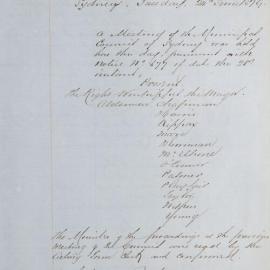 Sydney, Tuesday, 24
A Meeting of the Municipal
Council of Sydney was held
here this day, pursuant to the
Notice No 279 of date the 20th
instant.
Present.
The Right Worshipful the Mayor
Aldermen Chapman
Harris
Kippax
More
Merriman
McElhone
O'Connor
Palmer
Playfair
Taylor
Young
The Minutes of the proceedings at the previous
Meeting of the Council were read by the
Acting Town Clerk and confirmed.